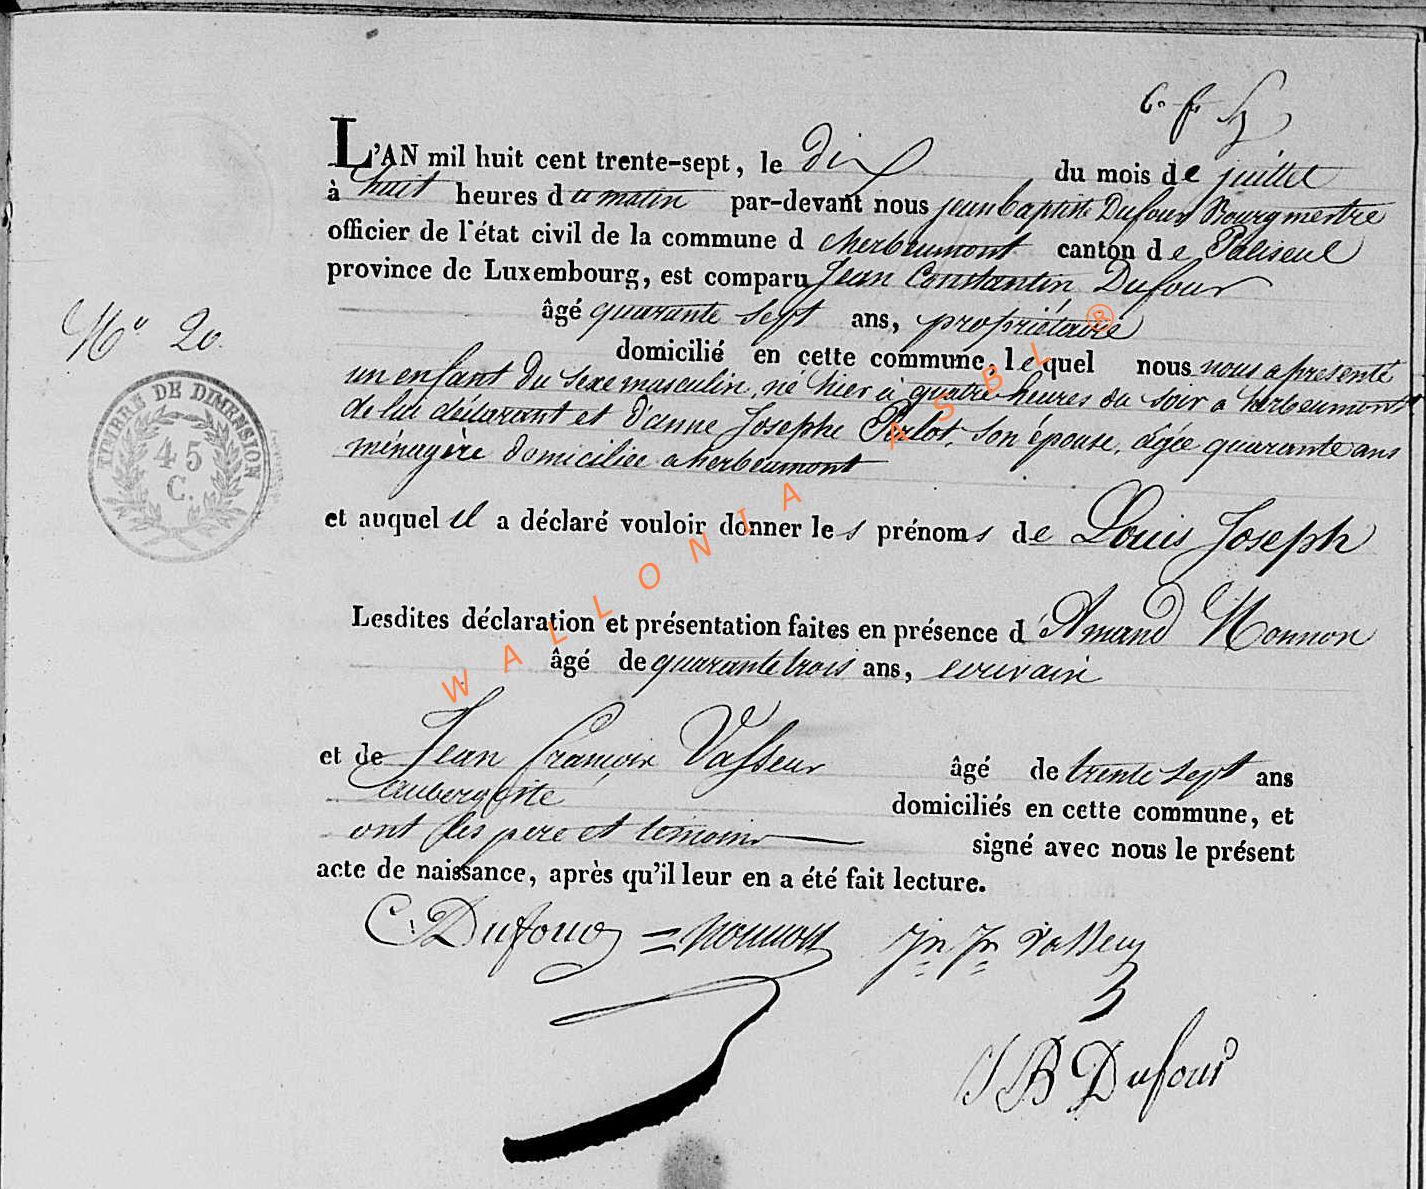 L'AN mil huit cent trente-sept, le dix du mois de juillet
à huit heures du matin par-devant nous jean baptiste Dufour Bourgmestre
officier de l'état civil de la commune d'herbeumont canton de Paliseul
province de Luxembourg, est comparu Jean Constantin Dufour
âgé quarante sept ans, propriétaire
domicilié en cette commune, lequel nous nous a presenté
un enfant du sexe masculin, né hier à quatre heures du soir a herbeumont
de lui déclarant et d'anne Josephe Parlot, son épouse, agée quarante ans
ménagère domiciliée a herbeumont
et auquel il a déclaré vouloir donner les prénoms de Louis Joseph
Lesdites déclaration et présentation faites en présence d'Amand Nonnon
âgé de quarante trois ans, ecrivain
et de Jean François Vasseur âgé de trente sept ans
aubergiste domiciliés en cette commune, et
ont les pere et témoins signé avec nous le présent
acte de naissance, après qu'il leur en a été fait lecture.
C. Dufour = Nonnon Jn Fr Vasseur
J B Dufour
No 20.
TIMBRE DE DIMENSION
45
C.
WALLONIA ASBL ®